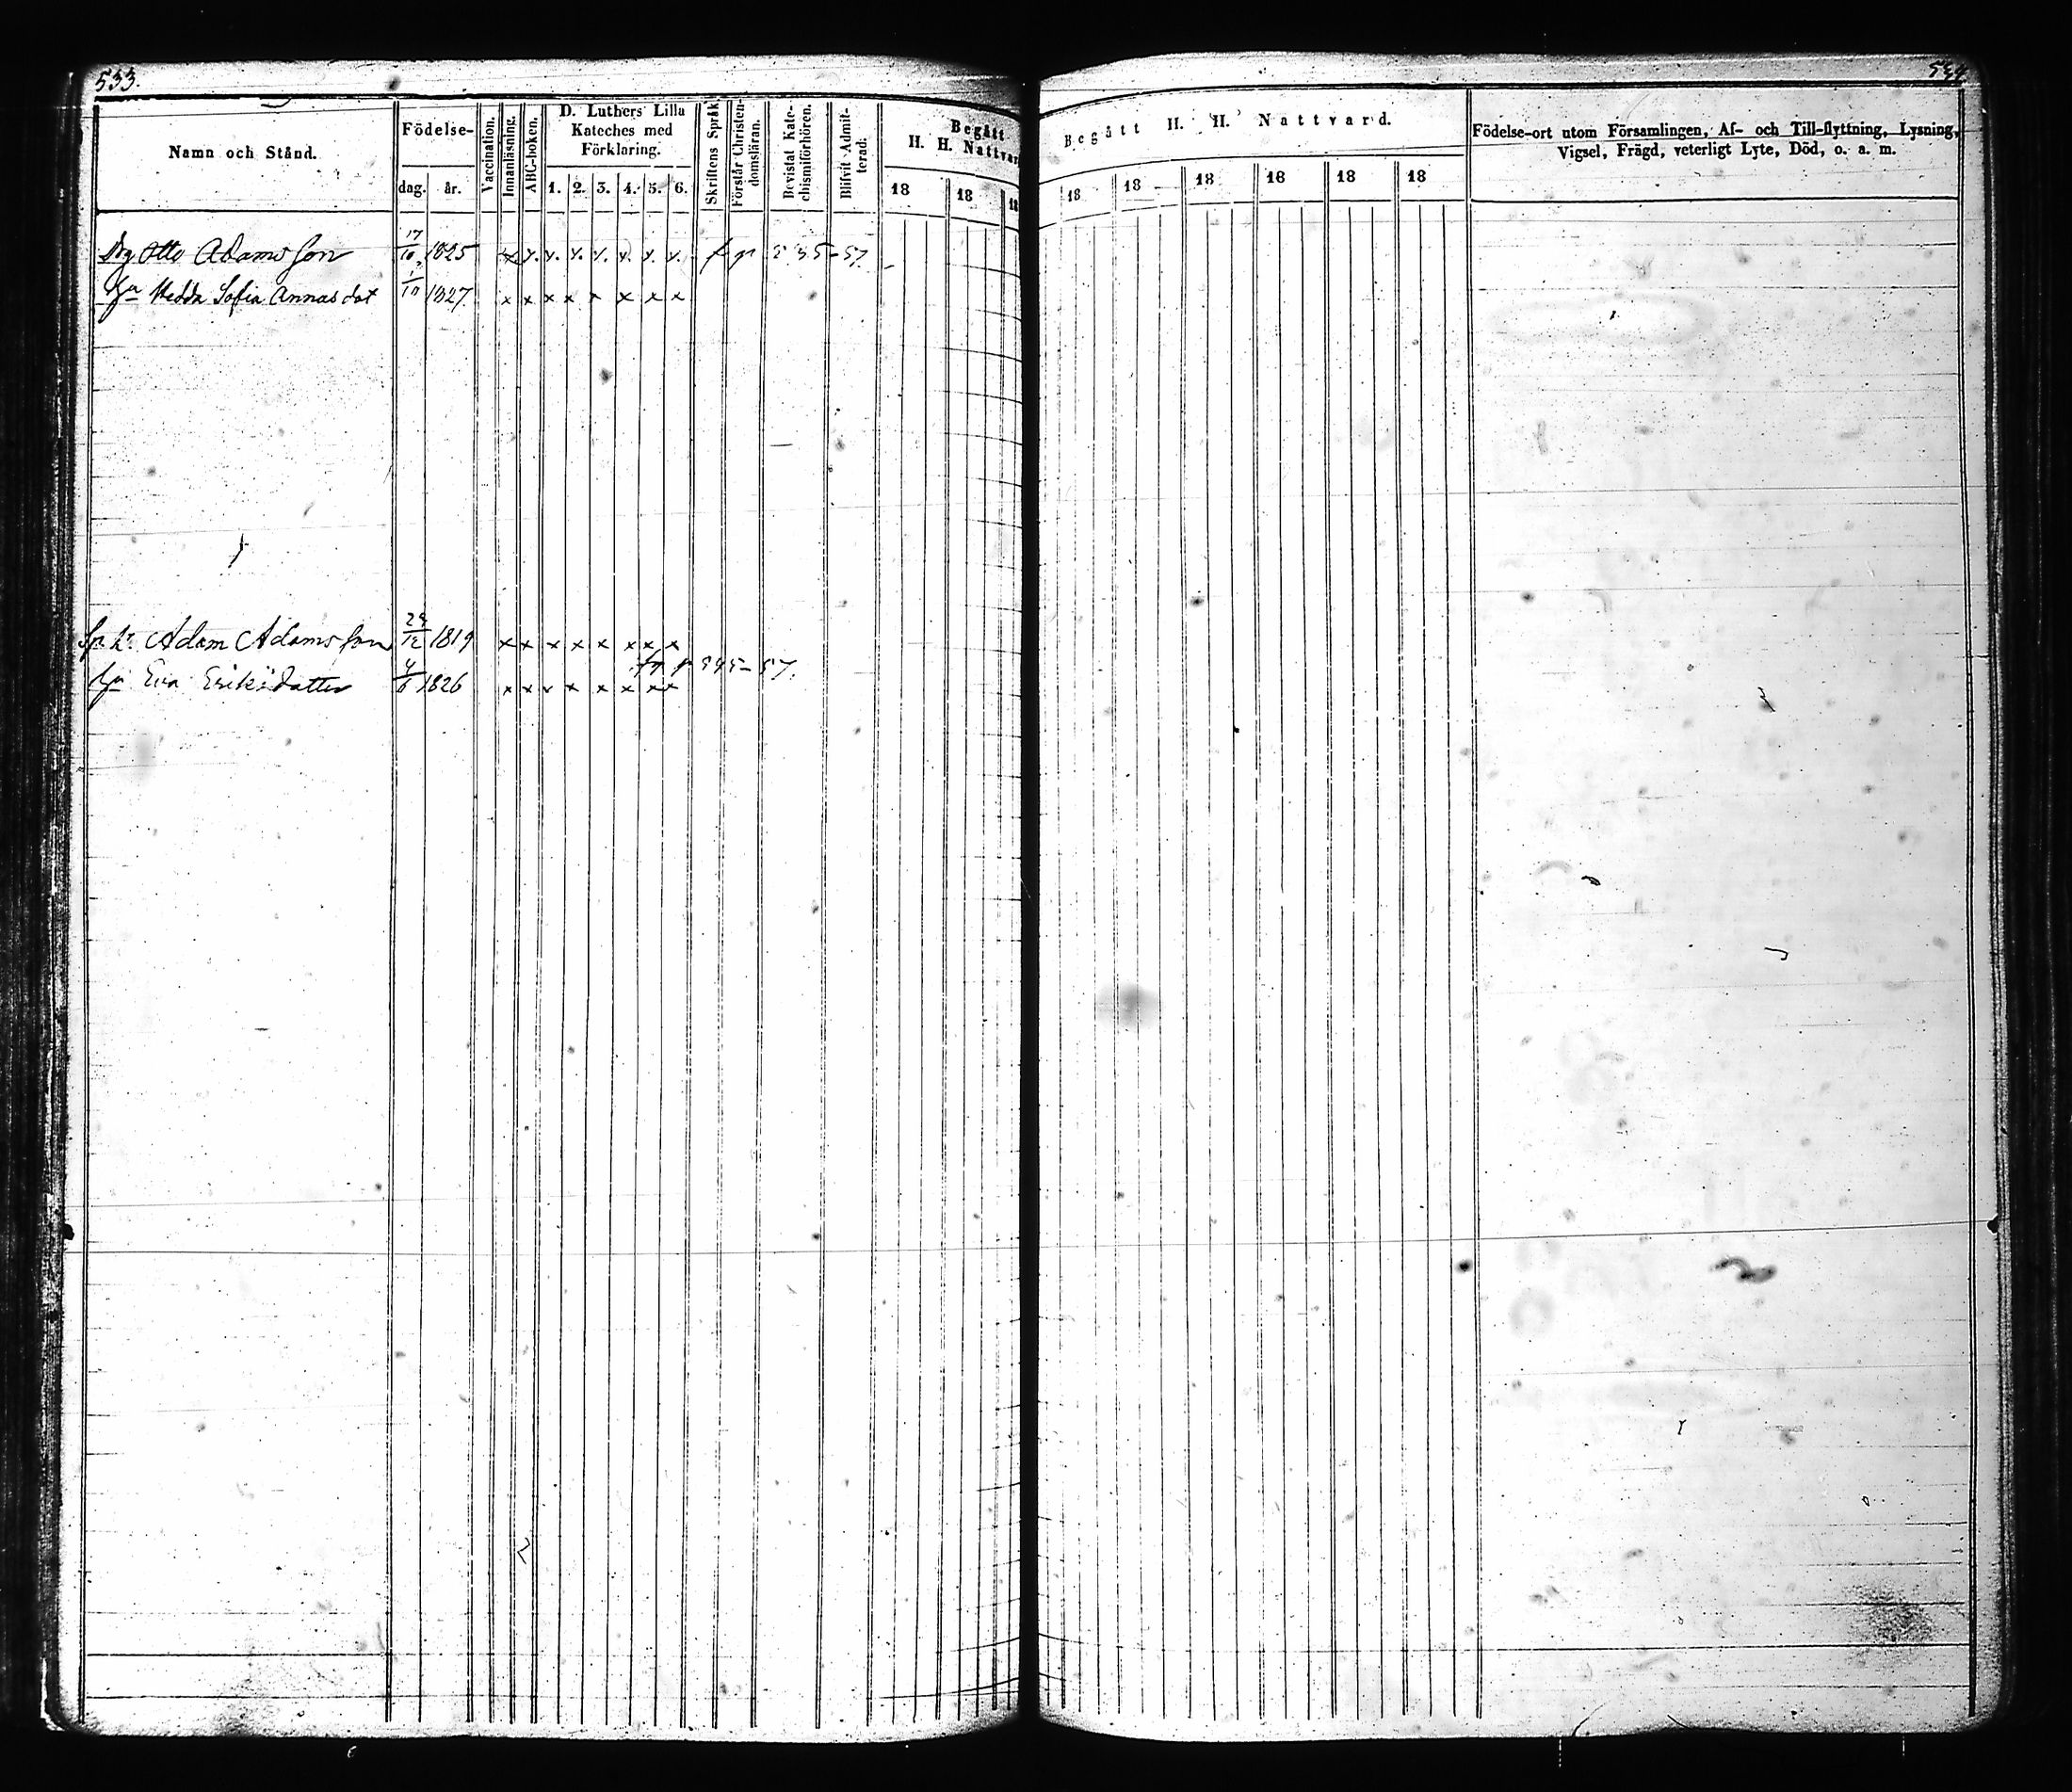 533.
534
Namn och Stånd.
Födelse-
dag. år.
Vaccination.
Innanläsning.
ABC-boken.
D. Luthers Lilla
Kateches med
Förklaring.
1. 2. 3. 4. 5. 6.
Skriftens Språk
Förstår Christen-
domsläran.
Bevistat Kate-
chismiförhören.
Blifvit Admit-
terad.
Begått
H. H. Nattvard
18 18 18
Begått H. H. Nattvard.
18 18 18 18 18 18
Födelse-ort utom Församlingen, Af- och Till-flyttning, Lysning,
Vigsel, Frägd, veterligt Lyte, Död, o. a. m.
Otto Adamsson 17/10 1825 x x. x. x. x. x. x. x. - 57.
Hu Hedda Sofia Annasdot 1/10 1827. x x x x x x x x
Adam Adamsson 29/12 1819 x x x x x x x x
- 57.
Hu Eva Eriksdotter 4/6 1826 x x x x x x x x